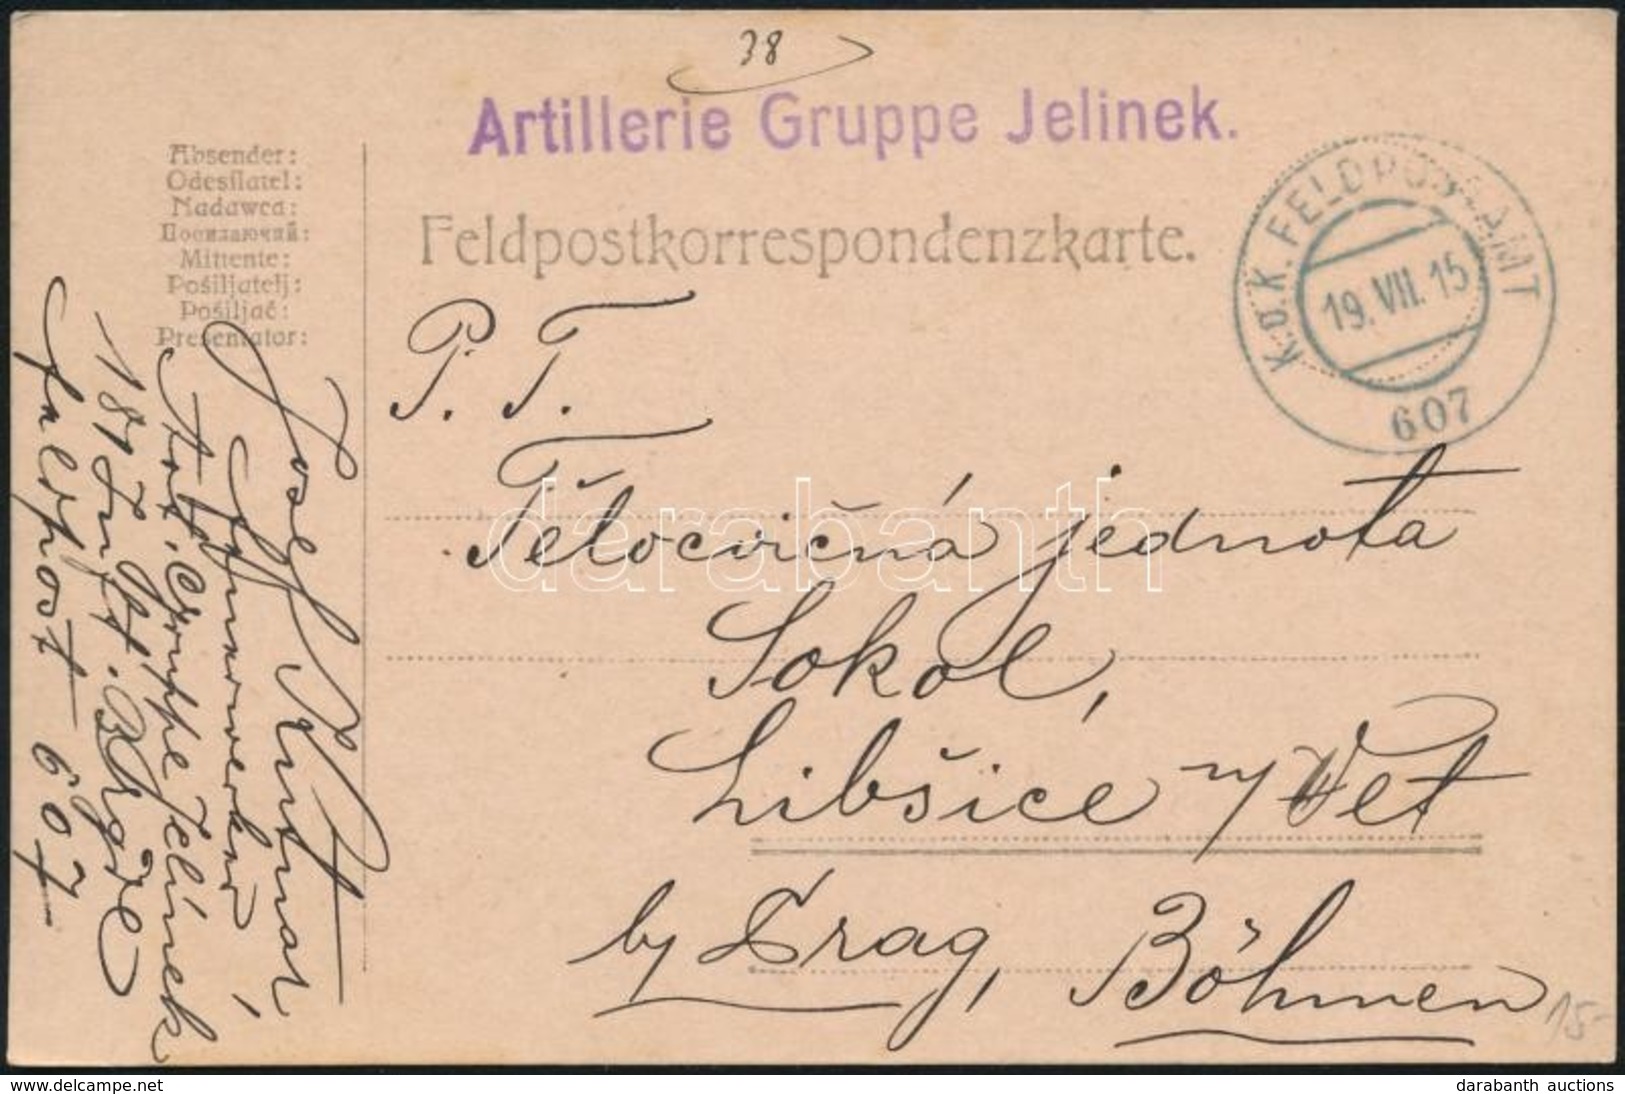 38
Artillerie Gruppe Jelinek.
K.u.K. FELDPOSTAMT
19. VII. 15
607
Absender:
Odesílatel:
Nadawca:
Посилаючий:
Mittente:
Pošiljatelj:
Pošiljač:
Presentator:
Feldpostkorrespondenzkarte.
P. T.
Tělocvičná jednota
Sokol,
Libšice n/Vlt
by Prag, Böhmen
Josef
Feuerwerker,
Art. Gruppe Jelínek
187 Inft. Brgde
Faldpost 607
15-
darabanth
www.delcampe.net
darabanth auctions